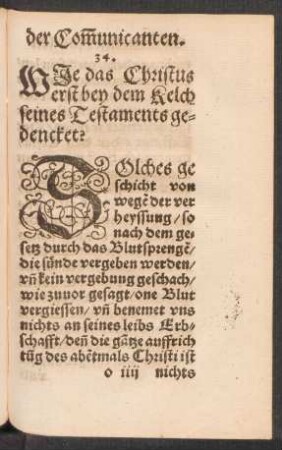 der Com̄unicanten.
34.
WJe das Christus
erst bey dem Kelch
seines Testaments ge-
dencket?
SOlches ge
schicht von
wegẽ der ver
heyssung/so
nach dem ge-
setz durch das Blutsprengẽ/
die sünde vergeben werden/
vñ kein vergebung geschach/
wie zuuor gesagt/one Blut
vergiessen/ vñ benemet vns
nichts an seines leibs Erb-
schafft/ deñ die gãtze auffrich
tũg des abẽtmals Christi ist
o iiij nichts